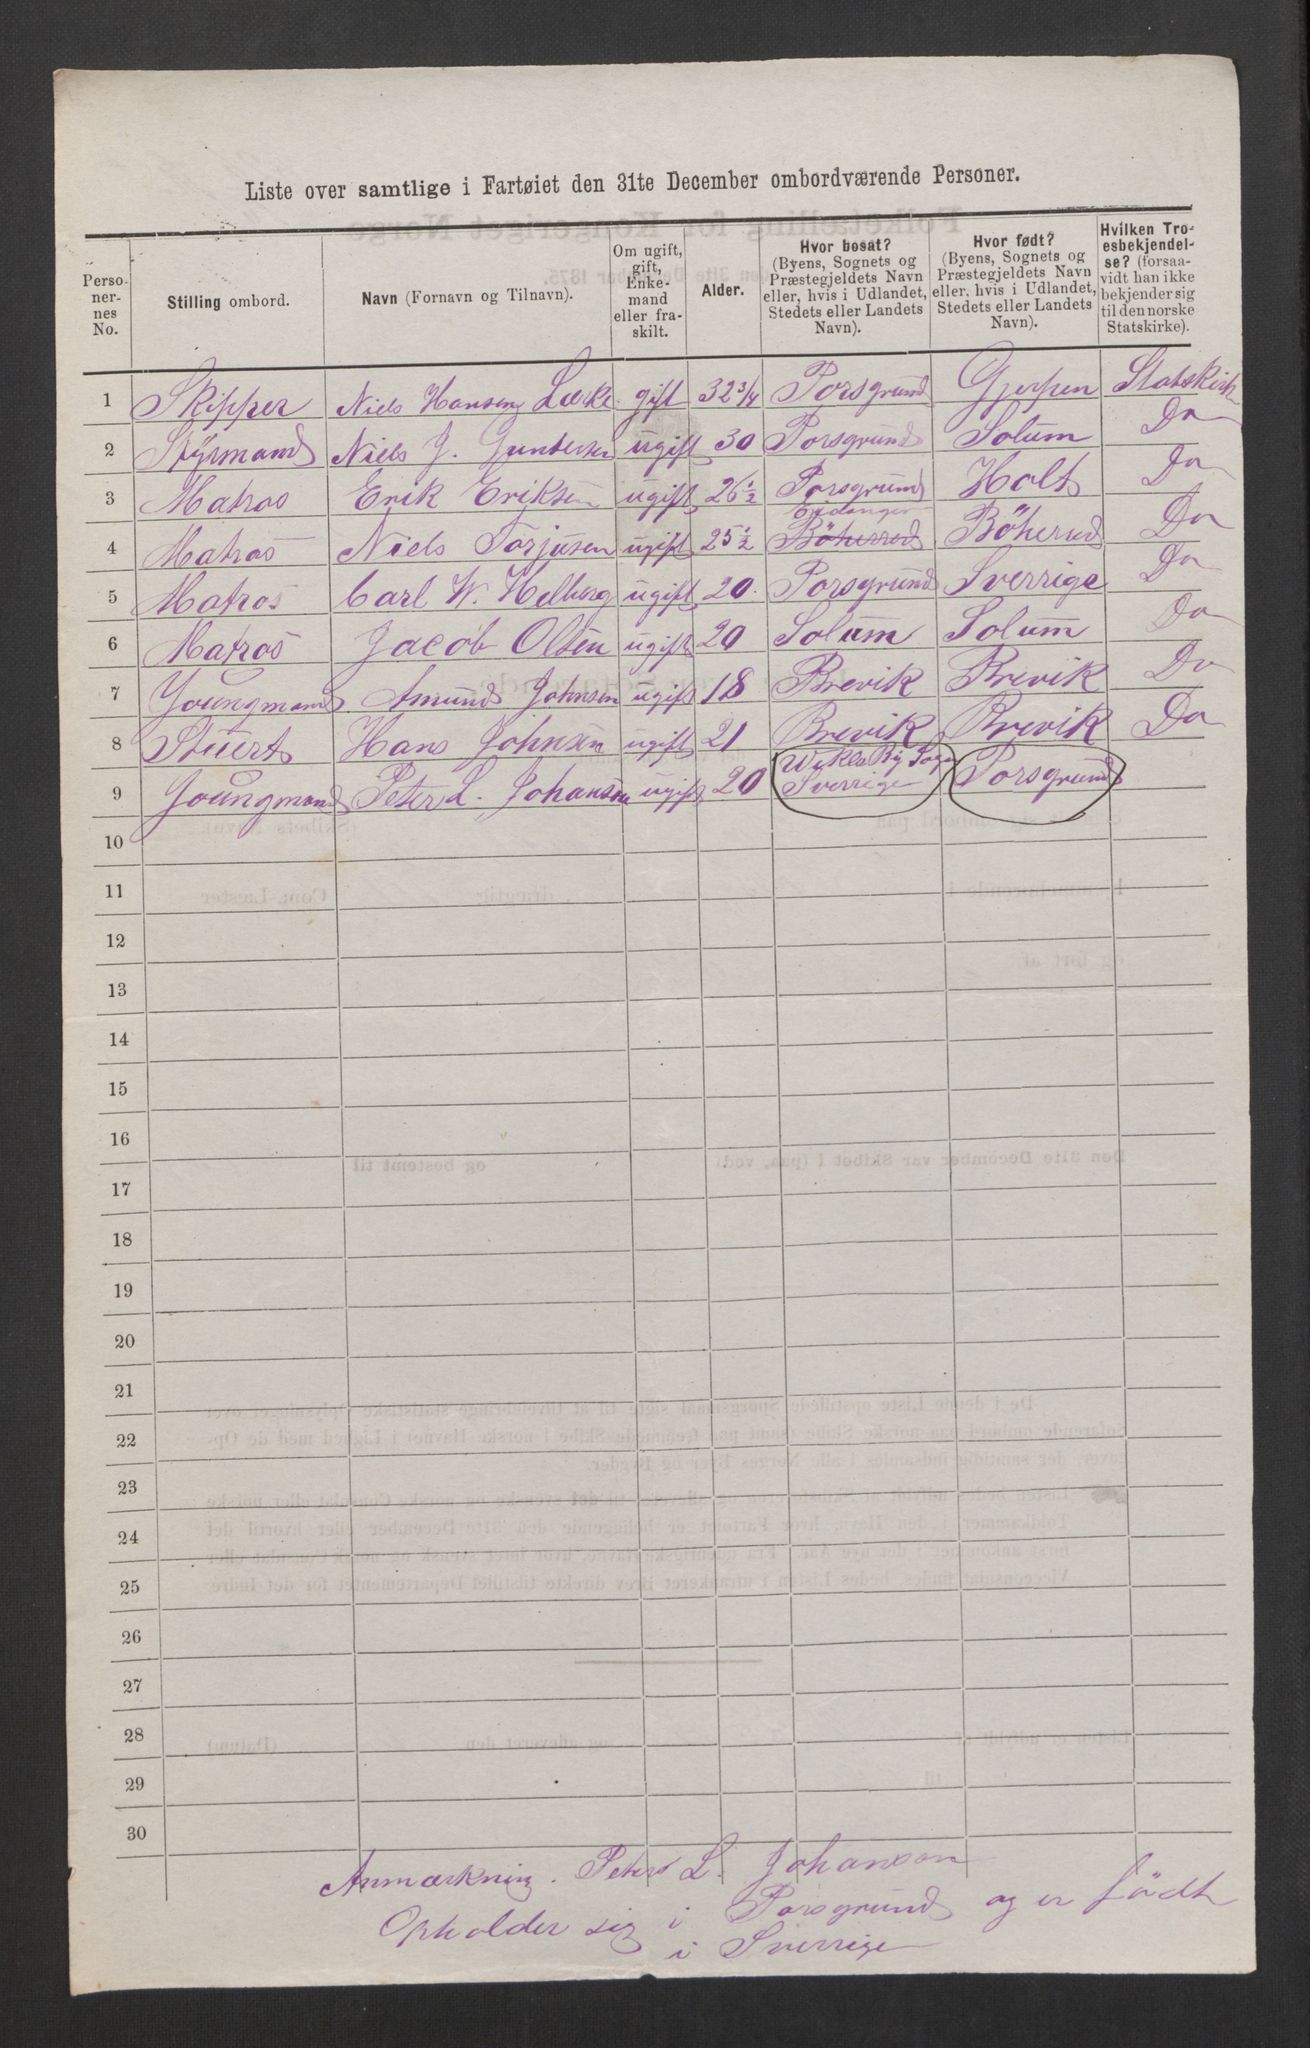 Liste over samtlige i Fartøiet den 31te December ombordværende Personer.
Perso-nernes No. | Stilling ombord. | Navn (Fornavn og Tilnavn). | Om ugift, gift, Enkemand eller fraskilt. | Alder. | Hvor bosat? (Byens, Sognets og Præstegjeldets Navn eller, hvis i Udlandet, Stedets eller Landets Navn). | Hvor født? (Byens, Sognets og Præstegjeldets Navn eller, hvis i Udlandet, Stedets eller Landets Navn). | Hvilken Troesbekjendelse? (forsaavidt han ikke bekjender sig til den norske Statskirke).
1 Skipper Niels Hansen gift 32 3/4 Porsgrund Gjerpen Statskirk
2 Styrmand Niels J. Gundersen ugift 30 Porsgrund Solum Do
3 Matros Erik Eriksen ugift 26 1/2 Porsgrund Holt Do
Eidanger
4 Matros Niels Torjusen ugift 25 1/2 Böherred Böherred Do
5 Matros Carl W. Helberg ugift 20 Porsgrund Sverrige Do
6 Matros Jacob Olsen ugift 20 Solum Solum Do
7 Youngmand Amund Johnsen ugift 18 Brevik Brevik Do
8 Stuert Hans Johnsen ugift 21 Brevik Brevik Do
9 Youngmand Peter L. Johanson ugift 20 Sverrige Porsgrund
10
11
12
13
14
15
16
17
18
19
20
21
22
23
24
25
26
27
28
29
30
Anmærkning. Peter L. Johanson
Opholder sig i Porsgrund og er födt
i Sverrige